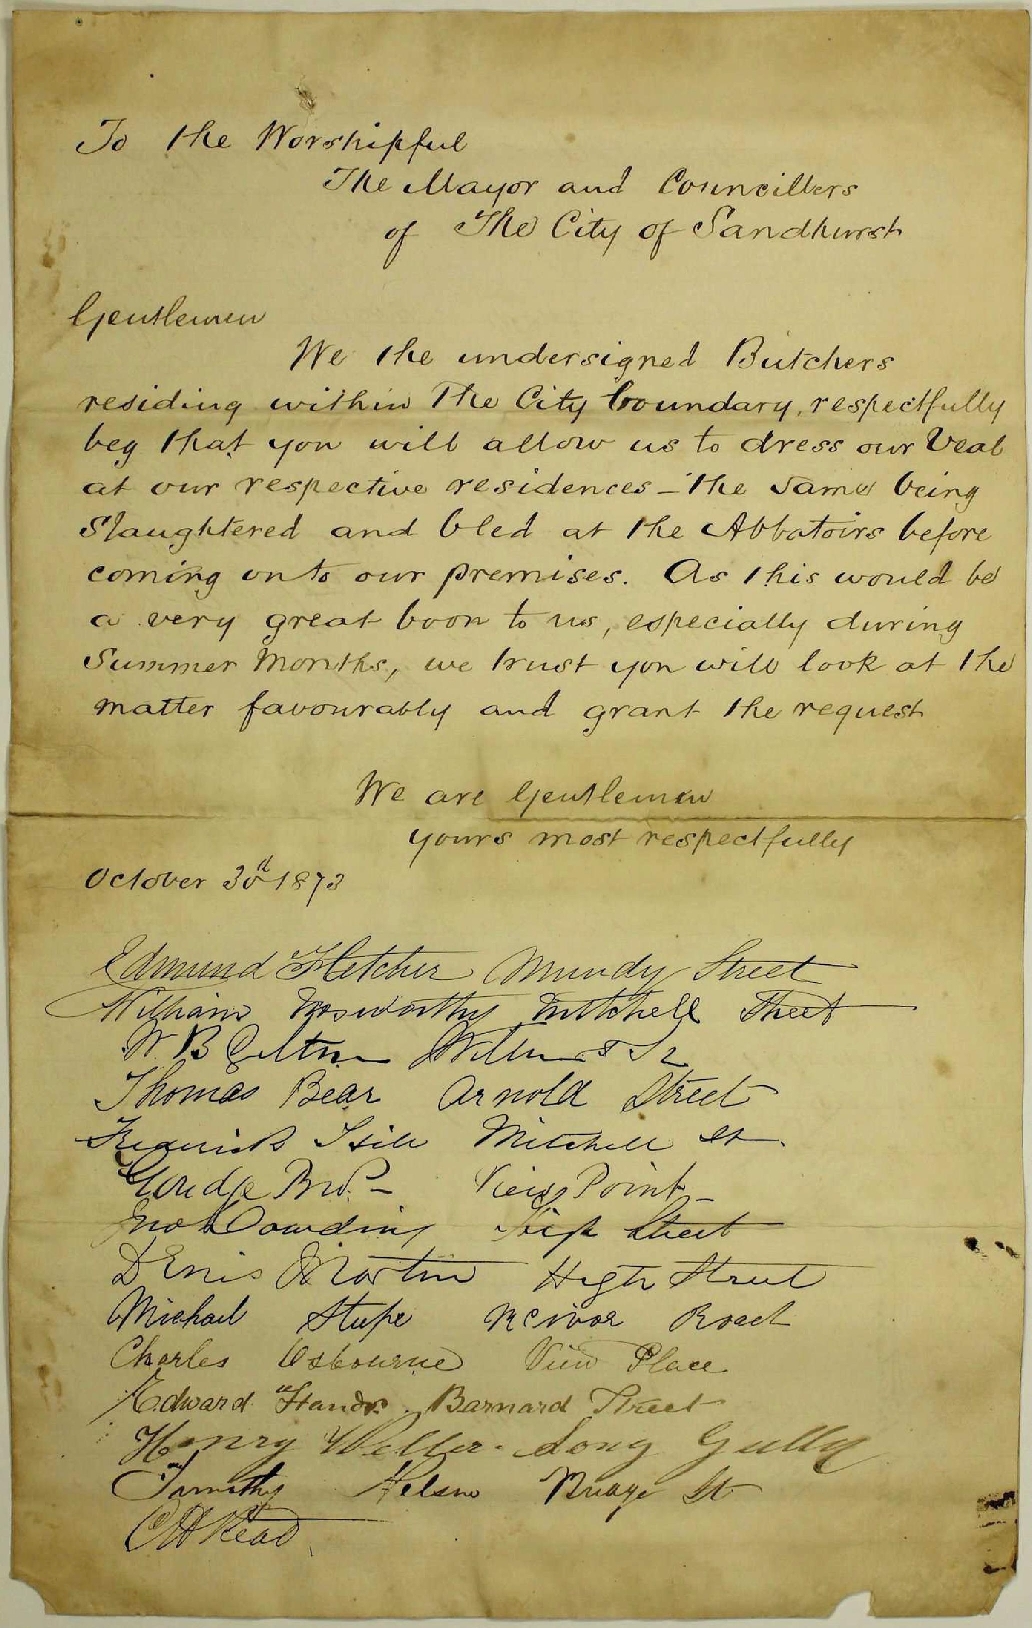 To the Worshipful
The Mayor and Councillers
of The City of Sandhurst
Gentlemen
We the undersigned Butchers
residing within The City boundary, respectfully
beg that you will allow us to dress our Veal
at our respective residences – the same being
Slaughtered and bled at the Abbatoirs before
coming onto our premises. As this would be
a very great boon to us, especially during
Summer Months, we trust you will look at the
matter favourably and grant the request
We are Gentlemen
yours most respectfully
October 30th 1873
Edmund Fletcher Mundy Street
William Mosworthy Mitchell Street
W B
Thomas Bear Arnold Street
Frederick Mitchell St.
Bros. – View Point –
Dowding High Street
Denis Martin High Street
Michael McIvor Road
Charles Osbourne View Place
Edward Hands. Barnard Street
Henry Weller. Long Gully
Timothy Nelson Bridge St
C H Read